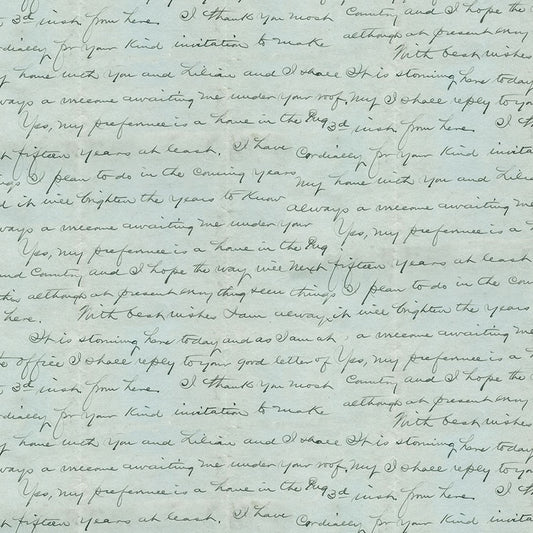 3d inst from here. I thank you most Country and I hope the
although at present any
cordially for your kind invitation to make
With best wishes
my home with you and Lilian and I shall It is storming here today
always a welcome awaiting me under your roof. My I shall reply to you
Yes, my preference is a home in the 3d inst from here. I
fifteen years at least. I have cordially for your kind invita
I plan to do in the coming years my home with you and Lilia
it will brighten the years to know always a welcome awaiting me
ways a welcome awaiting me under your Yes, my preference is a
Yes, my preference is a home in the
and Country and I hope the way will next fifteen years at least
although at present any thing seen things I plan to do in the co
here. With best wishes I am always it will brighten the years
It is storming here today and as I am at a welcome awaiting me
office I shall reply to your good letter of Yes, my preference is a
3d inst from here. I thank you most Country and I hope the
although at present any
cordially for your kind invitation to make
With best wishes
my home with you and Lilian and I shall It is storming here today
ways a welcome awaiting me under your roof. My I shall reply to you
Yes, my preference is a home in the 3d inst from here. I
fifteen years at least. I have cordially for your kind invita